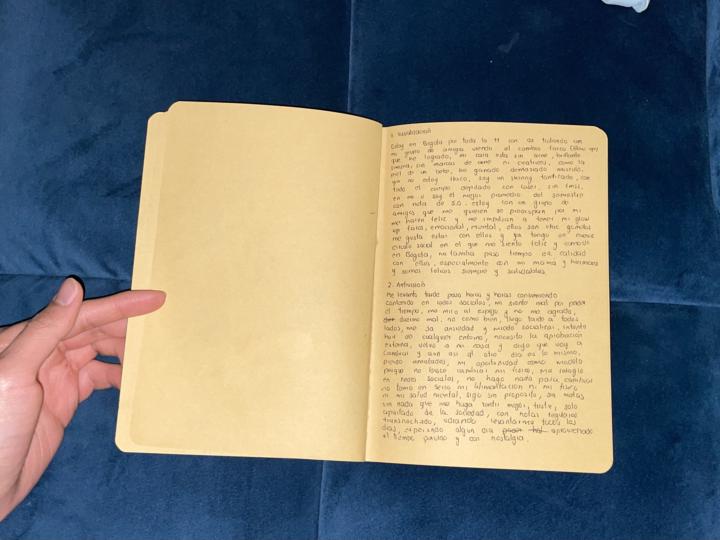 Estoy en Bogota por toda la
mi grupo de amigos viendo el cambio físico (Glow up)
que he logrado, mi cara esta sin acne,
sin marcas de acne ni cicatrices, como la
piel de un bebe, he ganado demasiado musculo,
ya no estoy flaco, soy un skinny tonificado, con
todo el cuerpo depilado con laser, sin
en la U soy el mejor promedio del semestre
con nota de 5.0. estoy con un grupo de
amigos que me quieren se preocupan por mi
me hacen feliz y me impulsan a tener mi glow
up fisico, emocional, mental, ellos son chic
me gusta estar con ellos y ya tengo un
circulo social en el que me siento feliz y
en Bogota, mi familia paso tiempo de calidad
con ellos, especialmente con mi mama y hermanos
y somos felices siempre y saludables.
2. Antivision
Me levanto tarde paso horas y horas consumiendo
contenido en redes sociales, me siento mal por perder
el tiempo, me miro al espejo y no me agrado,
mal, no como bien, llego tarde a todos
lados, me da ansiedad y miedo socializar, intento
huir de cualquier entorno, necesito la aprobación
externa, vuelvo a mi casa y digo que voy a
cambiar y aun asi al otro dia es lo mismo,
pierdo amistades, mi oportunidad como modelo
porque no busco cambiar mi fisico, me
en redes sociales, no hago nada para cambiar
no tomo en serio mi alimentación ni mi fisico
ni mi salud mental, sigo sin proposito, sin metas
sin nada que me haga sentir mejor, triste, solo
apartado de la sociedad, con notas regulares
trasnochado, odiando levantarme todos los
dias, esperando algun dia aprovechado
el tiempo perdido y con nostalgia.